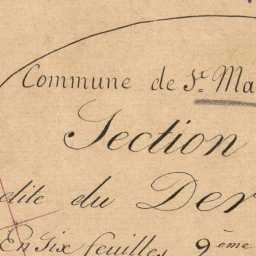 Commune de St. Ma
Section
dite du Der
En Six feuilles 9ème